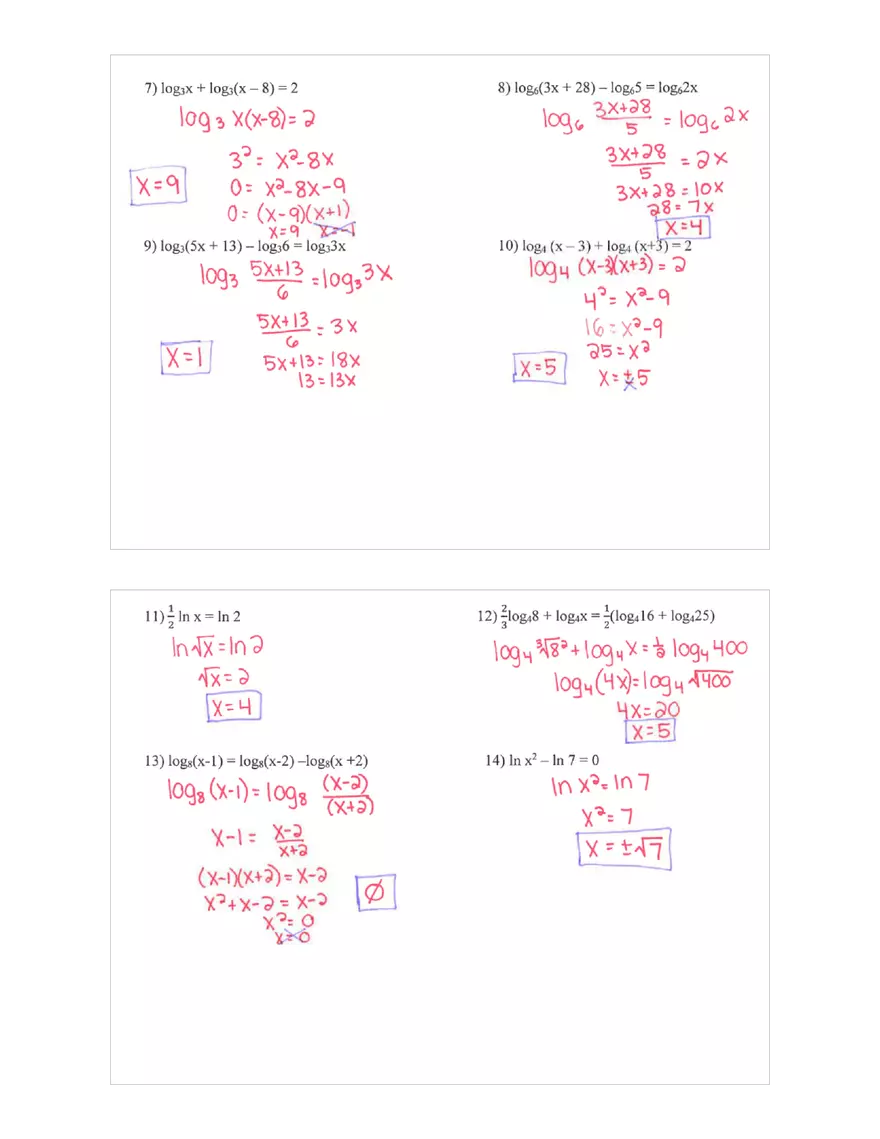 7) log₃x + log₃(x – 8) = 2
log₃ x(x-8) = 2
3² = x² - 8x
0 = x² - 8x - 9
0 = (x-9)(x+1)
x=9 x=-1
x=9
8) log₆(3x + 28) – log₆5 = log₆2x
log₆ (3x+28)/5 = log₆ 2x
(3x+28)/5 = 2x
3x+28 = 10x
28 = 7x
x=4
9) log₃(5x + 13) – log₃6 = log₃3x
log₃ (5x+13)/6 = log₃ 3x
(5x+13)/6 = 3x
5x+13 = 18x
13 = 13x
x=1
10) log₄ (x – 3) + log₄ (x+3) = 2
log₄ (x-3)(x+3) = 2
4² = x² - 9
16 = x² - 9
25 = x²
x = ±5
x=5
11) ½ ln x = ln 2
ln √x = ln 2
√x = 2
x=4
12) ⅔log₄8 + log₄x = ½(log₄16 + log₄25)
log₄ ∛8² + log₄ x = ½ log₄ 400
log₄(4x) = log₄ √400
4x = 20
x=5
13) log₈(x-1) = log₈(x-2) –log₈(x +2)
log₈(x-1) = log₈ (x-2)/(x+2)
x-1 = (x-2)/(x+2)
(x-1)(x+2) = x-2
x² + x - 2 = x-2
x² = 0
x=0
∅
14) ln x² – ln 7 = 0
ln x² = ln 7
x² = 7
x = ±√7